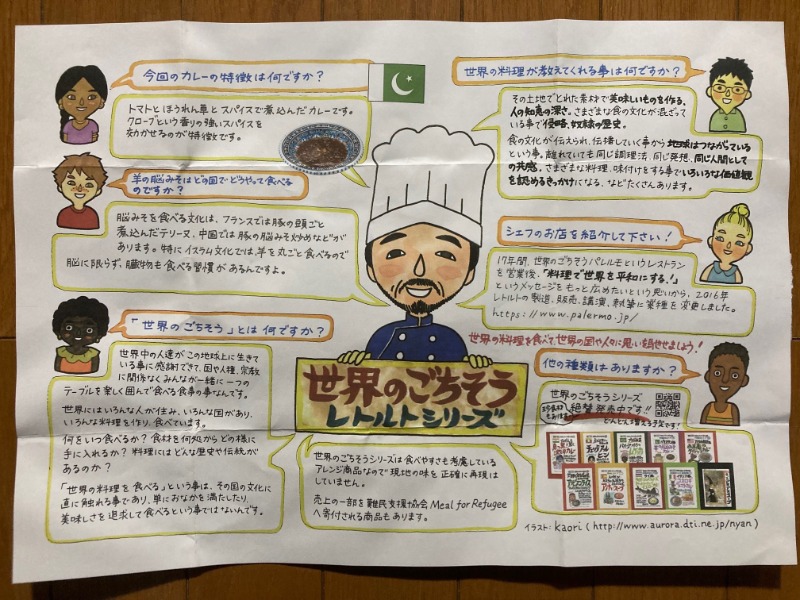 今回のカレーの特徴は何ですか？
トマトとほうれん草とスパイスで煮込んだカレーです。
クローブという香りの強いスパイスを
効かせるのが特徴です。
羊の脳みそはどの国でどうやって食べる
のですか？
脳みそを食べる文化は、フランスでは豚の頭ごと
煮込んだテリーヌ、中国では豚の脳みそ炒めなどが
あります。特にイスラム文化では、羊を丸ごと食べるので
脳に限らず、臓物も食べる習慣があるんですよ。
「世界のごちそう」とは何ですか？
世界中の人達がこの地球上に生きて
いる事に感謝できて、国や人種、宗教
に関係なくみんなが一緒に一つの
テーブルを楽しく囲んで食べる食事の事なんです。
世界にはいろんな人が住み、いろんな国があり、
いろんな料理を作り、食べています。
何をいつ食べるか？食材を何処からどの様に
手に入れるか？料理にはどんな歴史や伝統が
あるのか？
「世界の料理を食べる」という事は、その国の文化に
直に触れる事であり、単におなかを満たしたり、
美味しさを追求して食べるという事ではないんです。
世界の料理が教えてくれる事は何ですか？
その土地でとれた素材で美味しいものを作る、
人の知恵の深さ。さまざまな食の文化が混ざって
いる事で侵略、奴隷の歴史。
食の文化が伝えられ、伝播していく事から地球はつながっている
という事。離れていても同じ調理法、同じ発想、同じ人間として
の共感。さまざまな料理、味付けをする事でいろいろな価値観
を認めるきっかけになる、などたくさんあります。
シェフのお店を紹介して下さい！
17年間、世界のごちそうパレルモというレストラン
を営業後、「料理で世界を平和にする！」
というメッセージをもっと広めたいという思いから、2016年
レトルトの製造、販売、講演、執筆に業種を変更しました。
https://www.palermo.jp/
世界の料理を食べて、世界の国や人々に思いを馳せましょう！
他の種類はありますか？
世界のごちそうシリーズ
絶賛発売中です!!
どんどん増える予定です！
世界のごちそう
レトルトシリーズ
世界のごちそうシリーズは食べやすさも考慮している
アレンジ商品なので現地の味を正確に再現は
していません。
売上の一部を難民支援協会 Meal for Refugee
へ寄付される商品もあります。
イラスト：kaori ( http://www.aurora.dti.ne.jp/nyan )